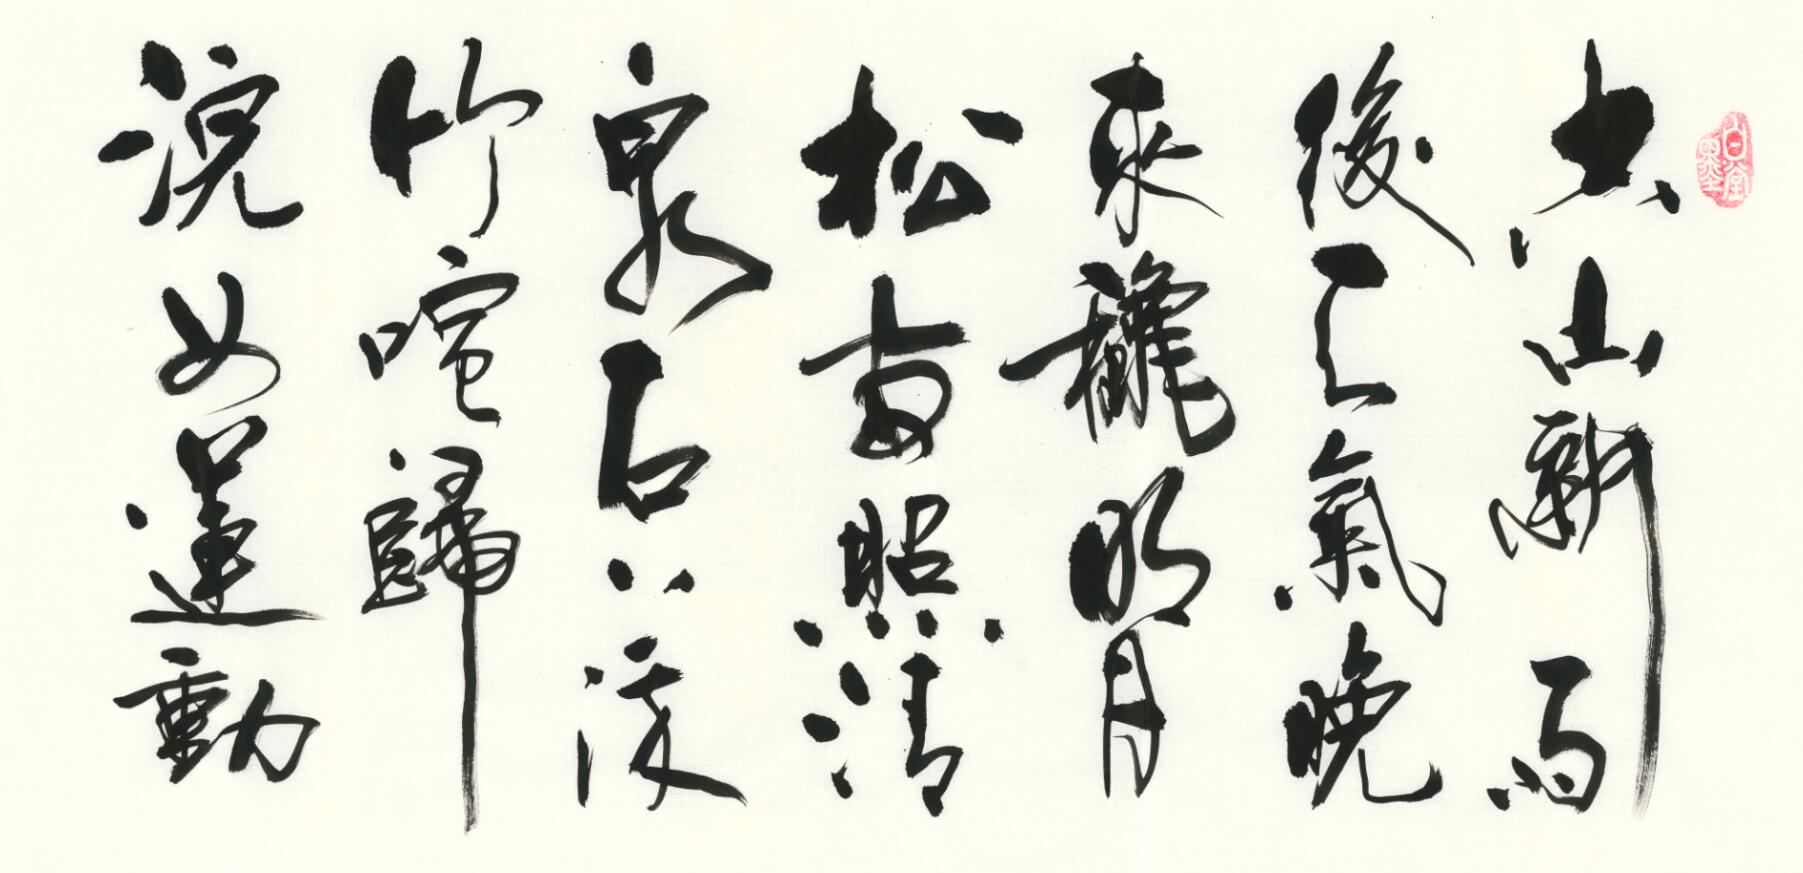 空山新雨
後天氣晚
來龝明月
松間照清
泉石上流
竹喧歸
浣女蓮動